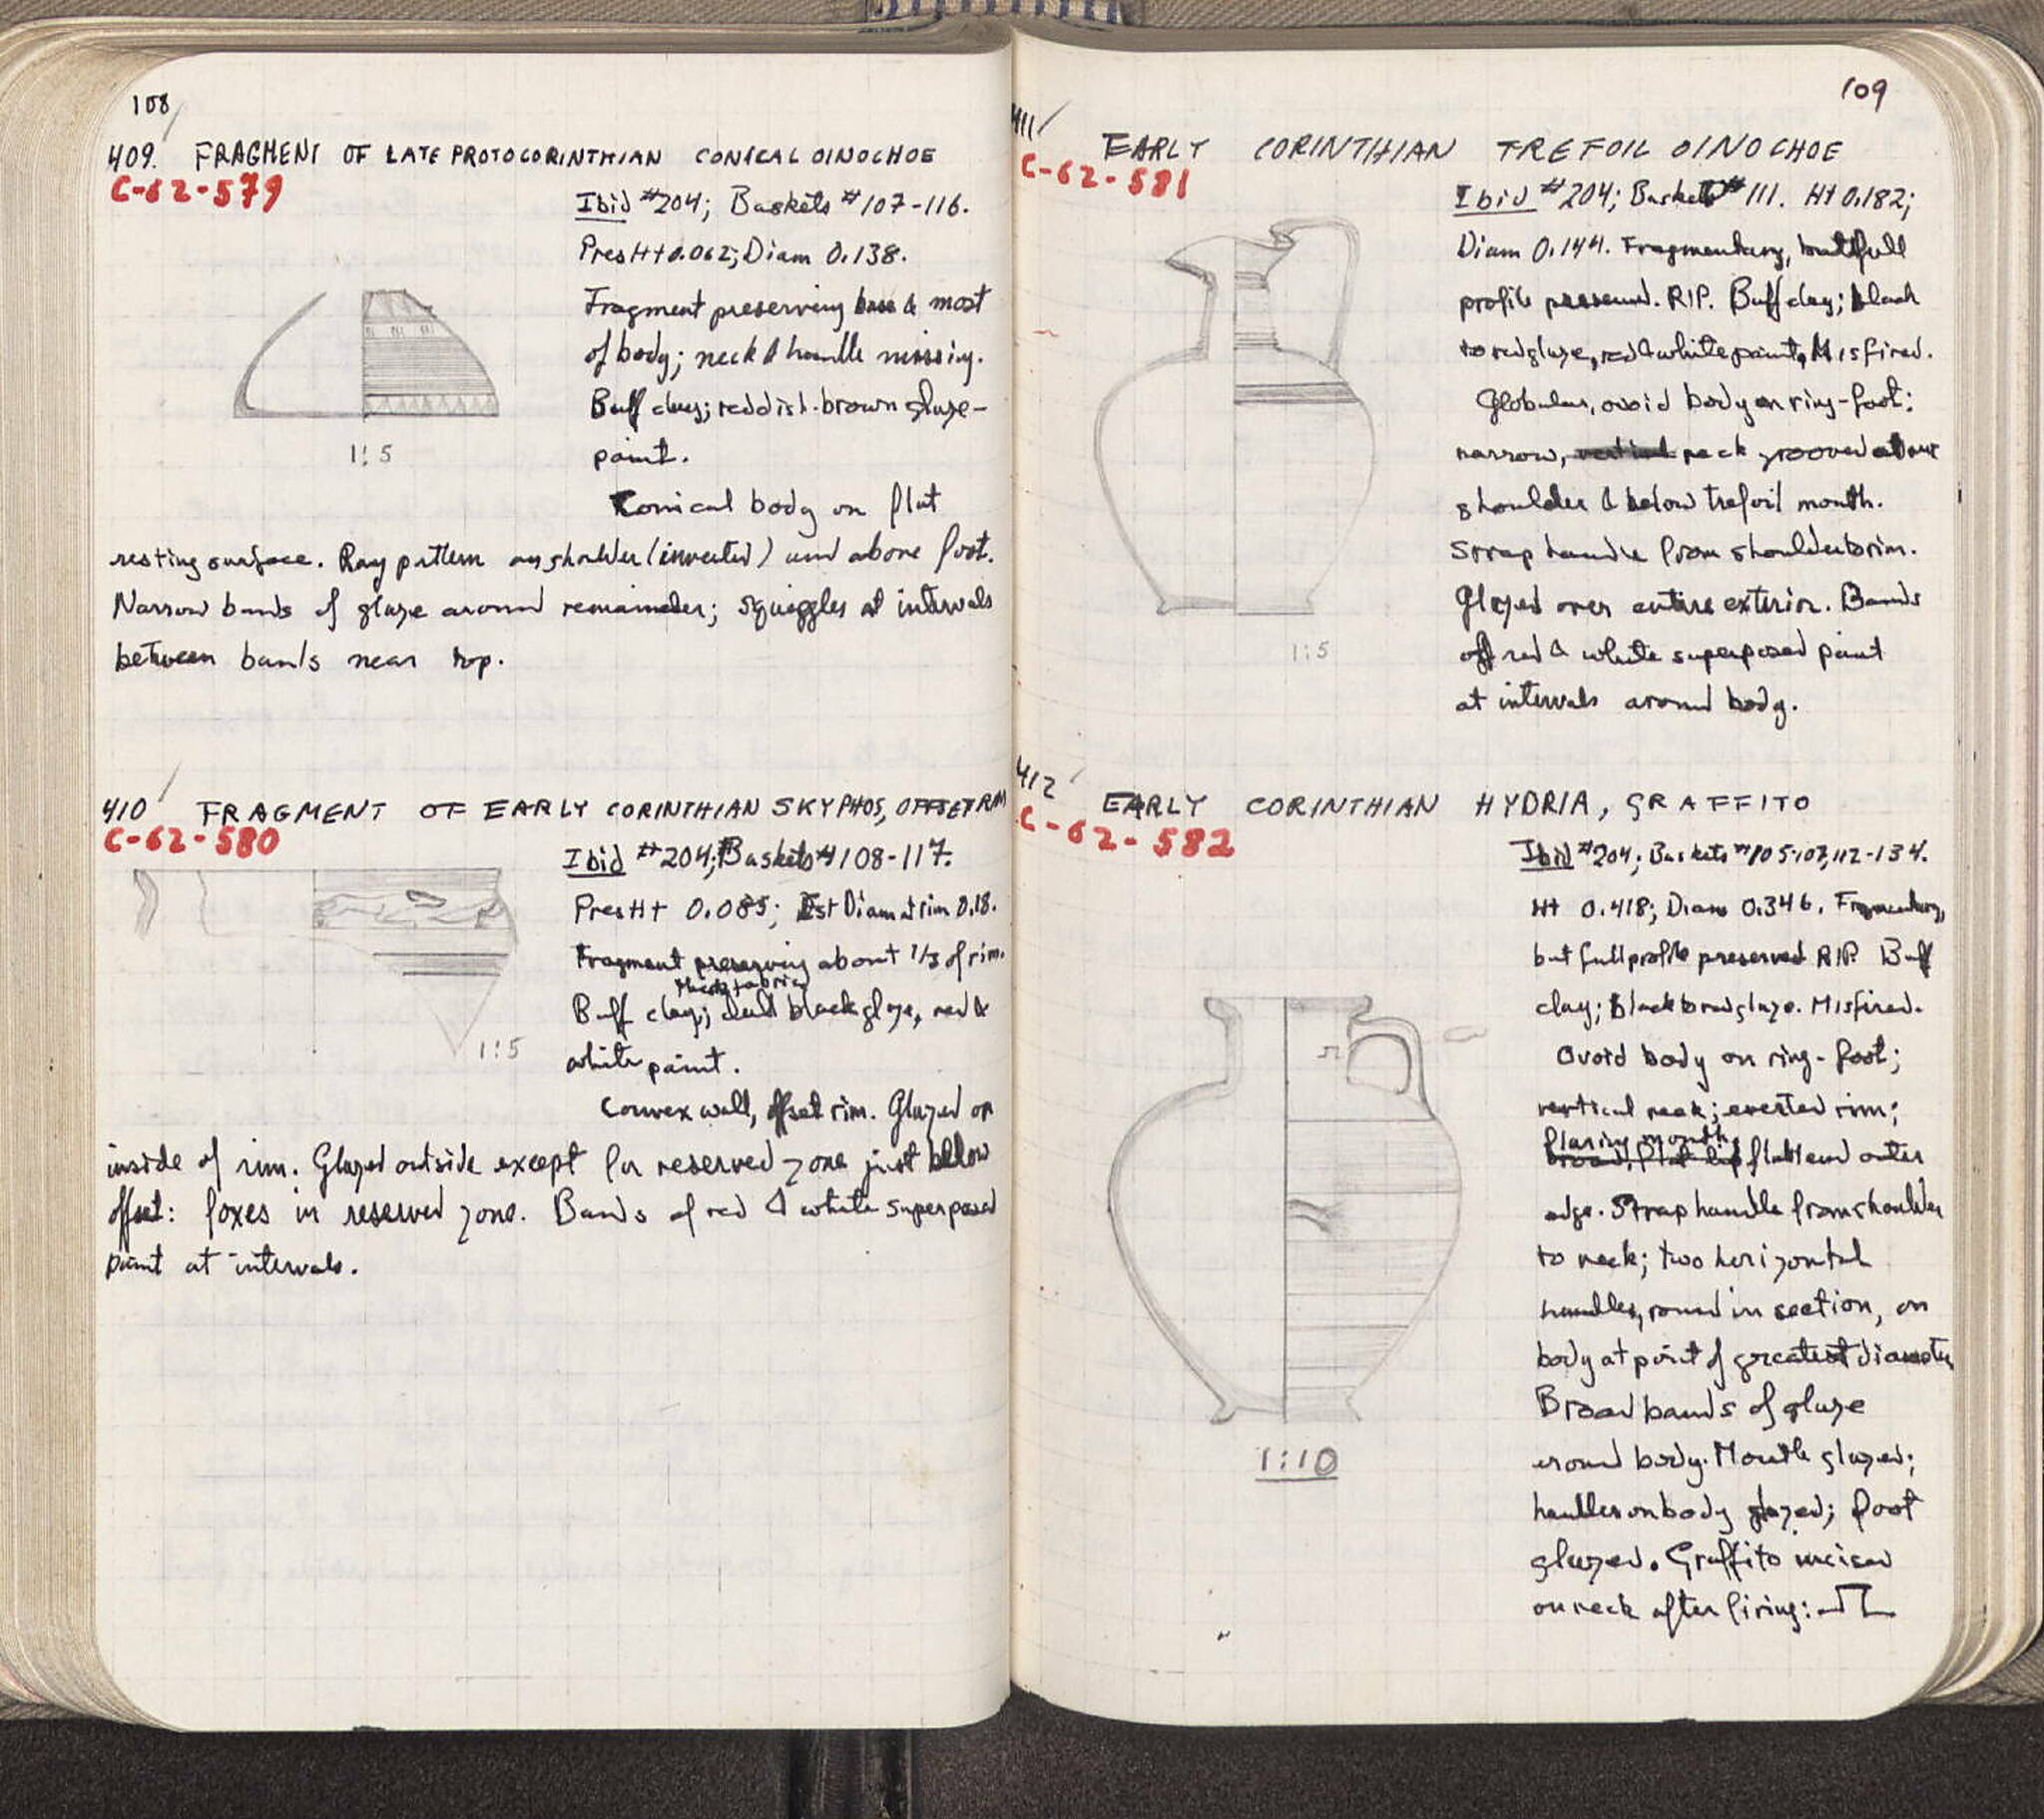 108
409. FRAGMENT OF LATE PROTOCORINTHIAN CONICAL OINOCHOE
C-62-579
Ibid #204; Baskets #107-116.
Pres Ht 0.062; Diam 0.138.
Fragment preserving base & most
of body; neck & handle missing.
Buff clay; reddish-brown glaze-
paint.
1:5
Conical body on flat
resting surface. Ray pattern on shoulder (inverted) and above foot.
Narrow bands of glaze around remainder; squiggles at intervals
between bands near top.
410 FRAGMENT OF EARLY CORINTHIAN SKYPHOS, OFFSET RIM
C-62-580
Ibid #204; Baskets #108-117.
Pres Ht 0.085; Est Diam at rim 0.18.
Fragment preserving about 1/3 of rim.
Thick fabric
Buff clay; dull black glaze, red &
white paint.
1:5
Convex wall, offset rim. Glazed on
inside of rim. Glazed outside except for reserved zone just below
offset: foxes in reserved zone. Bands of red & white superposed
paint at intervals.
109
411
EARLY CORINTHIAN TREFOIL OINOCHOE
C-62-581
Ibid #204; Basket #111. Ht 0.182;
Diam 0.144. Fragmentary, but full
profile preserved. RIP. Buff clay; black
to red glaze, red & white paint, Misfired.
Globular, ovoid body on ring-foot;
narrow, vertical neck grooved above
shoulder & below trefoil mouth.
Strap handle from shoulder to rim.
Glazed over entire exterior. Bands
of red & white superposed paint
at intervals around body.
1:5
412
EARLY CORINTHIAN HYDRIA, GRAFFITO
C-62-582
Ibid #204; Baskets #105-107, 112-134.
Ht 0.418; Diam 0.346. Fragmentary,
but full profile preserved RIP. Buff
clay; black to red glaze. Misfired.
Ovoid body on ring-foot;
vertical neck; everted rim;
flaring mouth,
broad, flat lip flattened outer
edge. Strap handle from shoulder
to neck; two horizontal
handles, round in section, on
body at point of greatest diameter
Broad bands of glaze
around body. Mouth glazed;
handles on body glazed; foot
glazed. Graffito incised
on neck after firing:
1:10